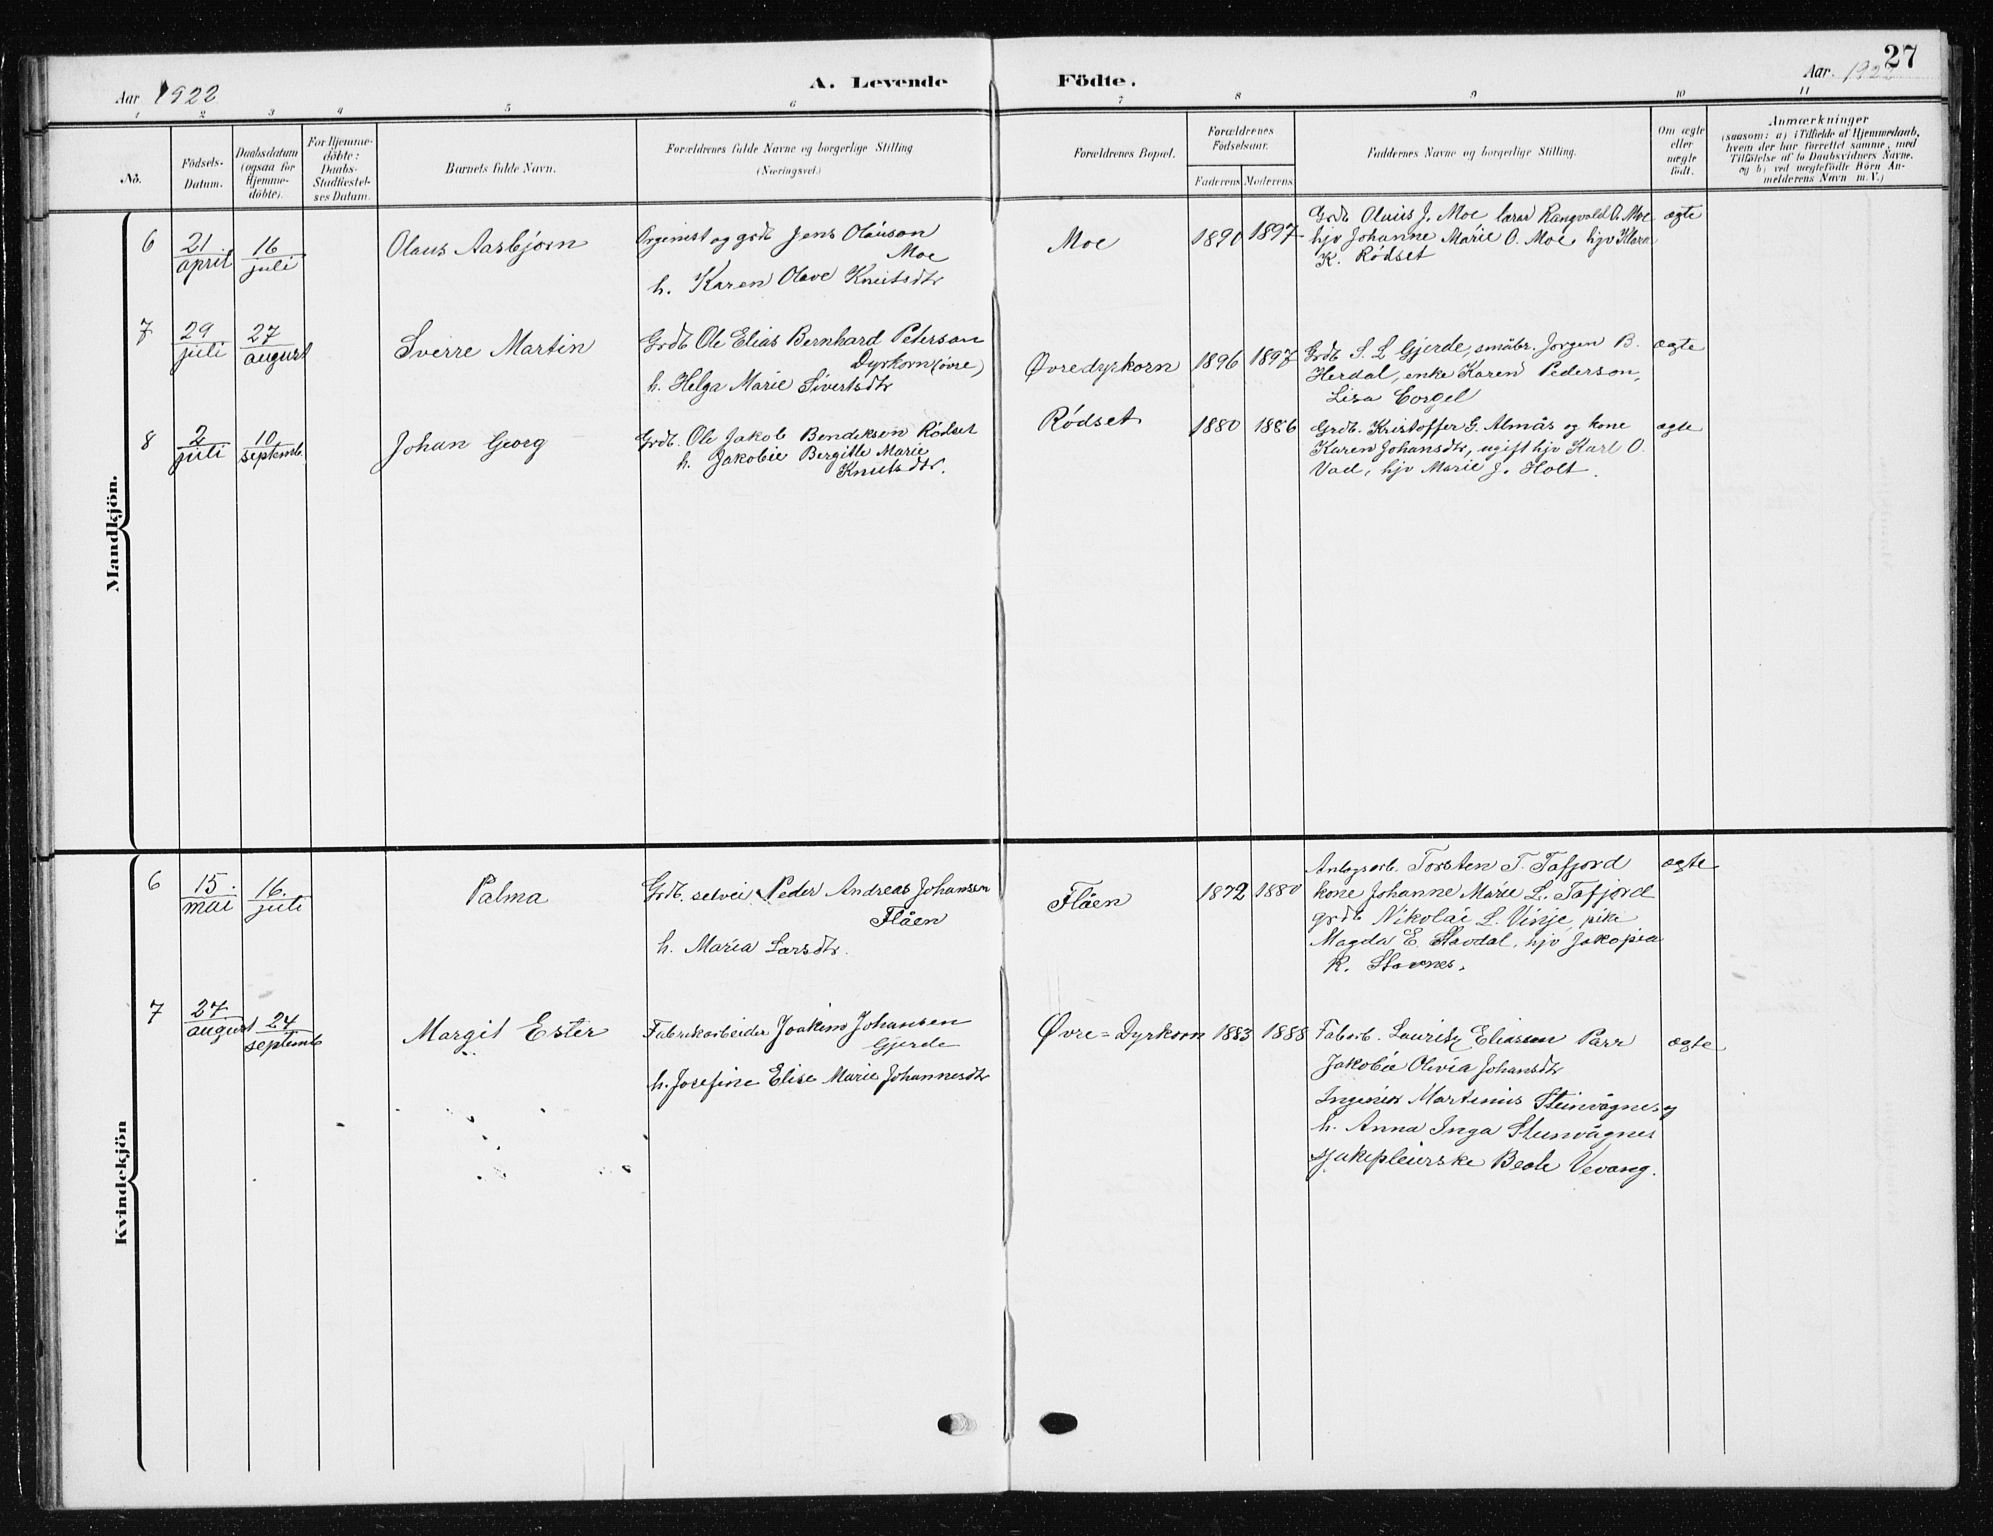 27
Aar 1922
A. Levende Födte.
Aar 1922
1 2 3 4 5 6 7 8 9 10 11
No.
Födsels-
Datum.
Daabsdatum
(ogsaa for
Hjemme-
döbte).
For Hjemme-
döbte:
Daabs-
Stadfæstel-
ses Datum.
Barnets fulde Navn.
Forældrenes fulde Navne og borgerlige Stilling
(Næringsvei.)
Forældrenes Bopæl.
Forældrenes
Fødselsaar.
Faderens Moderens
Faddernes Navne og borgerlige Stilling.
Om ægte
eller
uægte
født.
Anmærkninger
(saasom: a) i Tilfælde af Hjemmedaab,
hvem der har forrettet samme, med
Tilföielse af to Daabsvidners Navne.
og b) ved uægtefödte Börn An-
melderens Navn m. V.)
Mandkjön.
6
21
april
16
juli
Olaus Aasbjørn
Organist og grdb Jens Olausen
Moe
h. Karen Olave Knutsdtr
Moe
1890 1897
Grdb Olaus J. Moe lærar Rangvald O. Moe
hjv Johanne Marie O. Moe, hjv Klara
K. Rødset
ægte
7
29
juli
27
august
Sverre Martin
Grdb Ole Elias Bernhard Peterson
Dyrkorn (øvre)
h. Helga Marie Sivertsdtr
Øvredyrkorn
1896 1897
Grdb S. L Gjerde, småbr. Jørgen B.
Herdal, enke Karen Pederson,
Lisa Corgel
ægte
8
2
juli
10
septemb.
Johan Georg
Grdb. Ole Jakob Bendiksen Rødset
h. Jakobie Bergitte Marie
Knutsdtr.
Rødset
1880 1886
Grdb. Kristoffer G. Almås og kone
Karen Johansdtr, ugift hjv Karl O.
Vad, hjv Marie J. Holt.
ægte
Kvindekjön
6
15.
mai
16.
juli
Palma
Grdb. selvei Peder Andreas Johansen
Flåen
h. Maria Larsdtr.
Flåen
1872 1880
Anlegsarb. Torsten T. Tafjord
kone Johanne Marie L. Tafjord
grdb Nikolai L. Vinje, pike
Magda E. Stavdal, hjv Jakopia
K. Stavnes.
ægte
7
27
august
24
septemb
Margit Ester
Fabrikarbeider Joakim Johansen
Gjerde
h. Josefine Elise Marie Johannesdtr
Øvre=Dyrkorn
1883 1888
Fabarb. Lauritz Eliassen Parr
Jakobie Olivia Johansdtr
Ingeniør Martinius Steinvågnes og
h. Anna Inga Steinvågnes
sjukepleierske Beate Vevang.
ægte